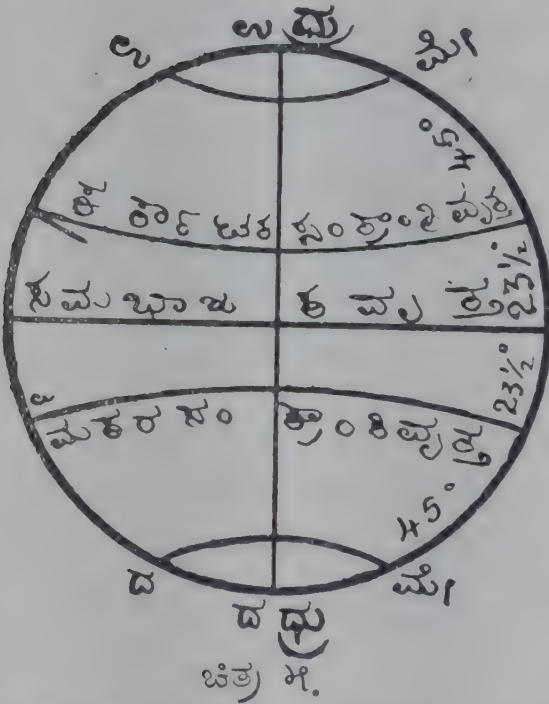 ಉ ಧ್ರು
ಉ ಮೇ
45°
ಕರ್ಕಾಟಕ ಸಂಕ್ರಾಂತಿ ವೃತ್ತ
23½°
ಸಮಭಾಜಕ ವೃತ್ತ
23½°
ಮಕರ ಸಂಕ್ರಾಂತಿ ವೃತ್ತ
45°
ದ ಮೇ
ದ ಧ್ರು
ಚಿತ್ರ ೫.